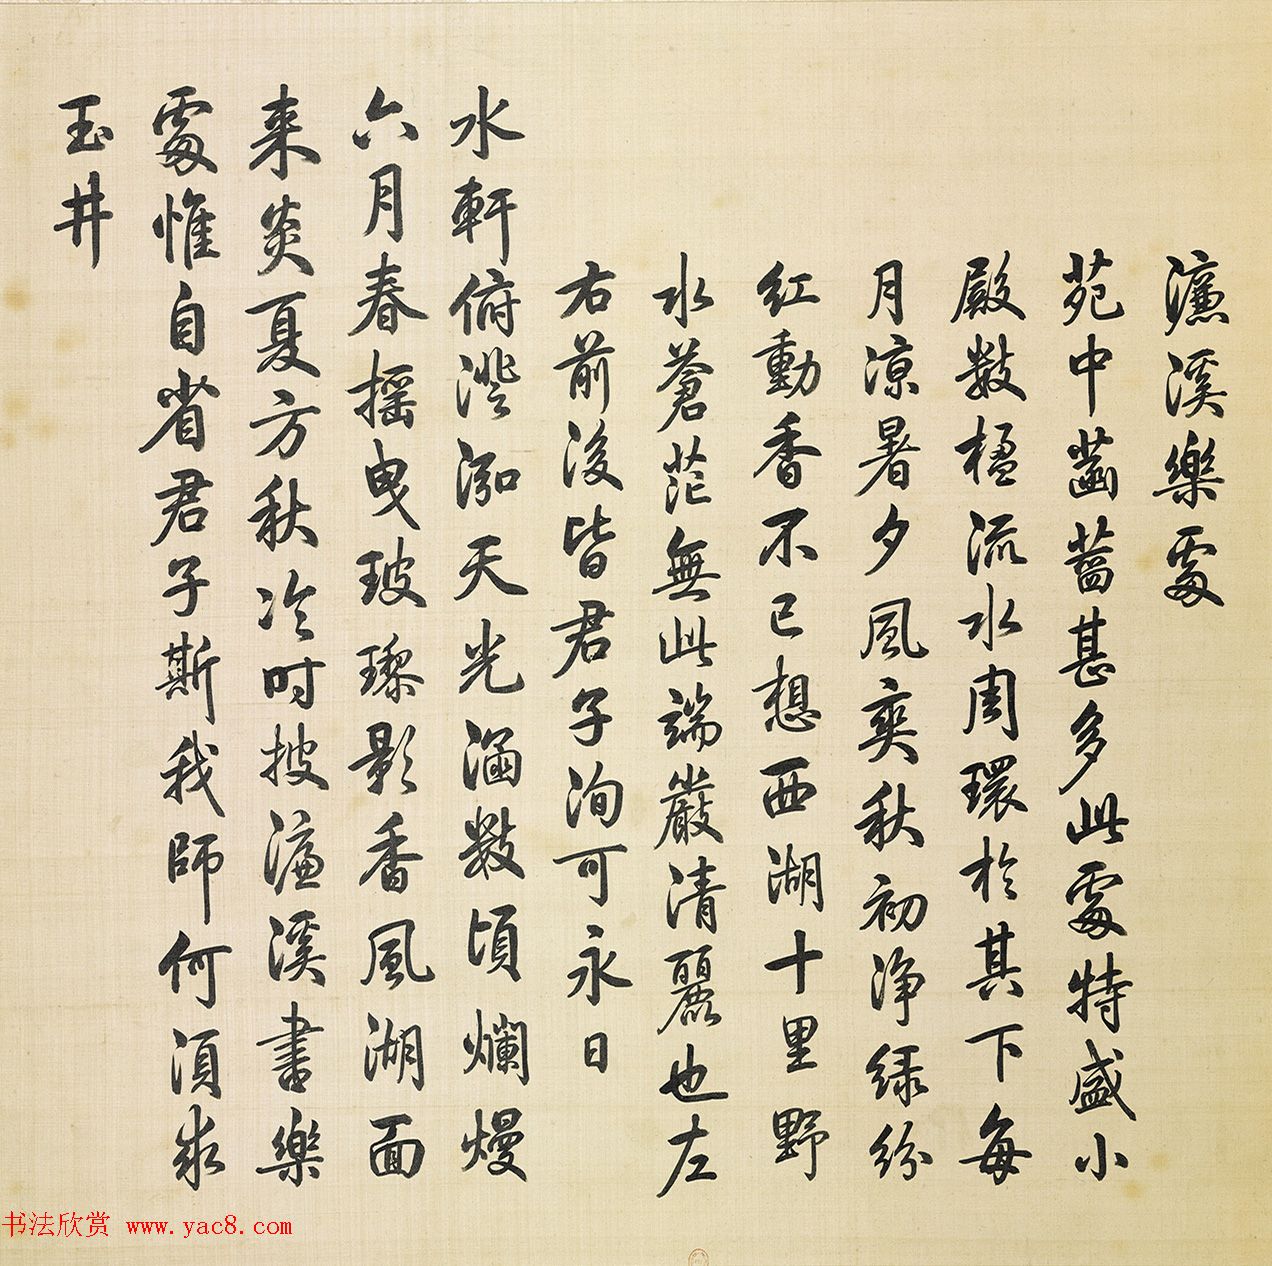 濂溪樂處
苑中菡萏甚多此處特盛小
殿數楹流水周環於其下每
月涼暑夕風爽秋初淨綠紛
紅動香不已想西湖十里野
水蒼茫無此端嚴清麗也左
右前後皆君子洵可永日
水軒俯澄泓天光涵數頃爛熳
六月春搖曳玻瓈影香風湖面
来炎夏方秋冷時披濂溪書樂
處惟自省君子斯我師何須求
玉井
书法欣赏 www.yac8.com